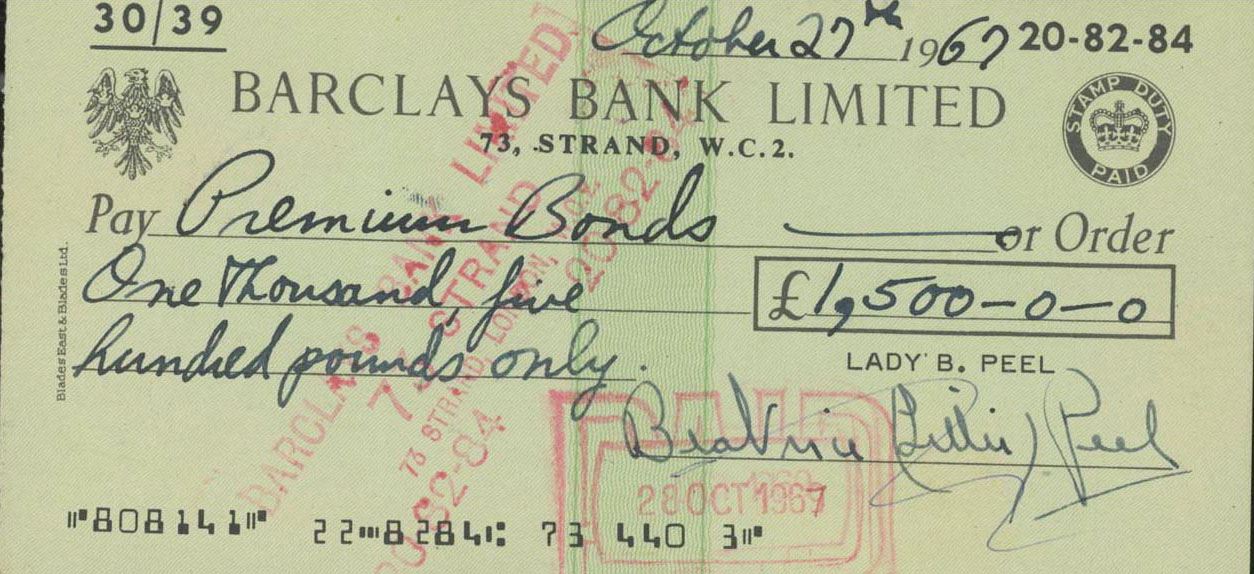 30/39
October 27th 1967 20-82-84
BARCLAYS BANK LIMITED
73, STRAND, W.C.2.
STAMP DUTY PAID
Pay Premium Bonds or Order
One Thousand, five
£1,500-0-0
hundred pounds only.
LADY B. PEEL
Beatrice Lillie Peel
Blades East & Blades Ltd.
BARCLAYS BANK LIMITED
73 STRAND
73 STRAND, LONDON, W.C.2.
20-82-84
20-82-84
PAID
28 OCT 1967
808141 22 8284 73 440 3